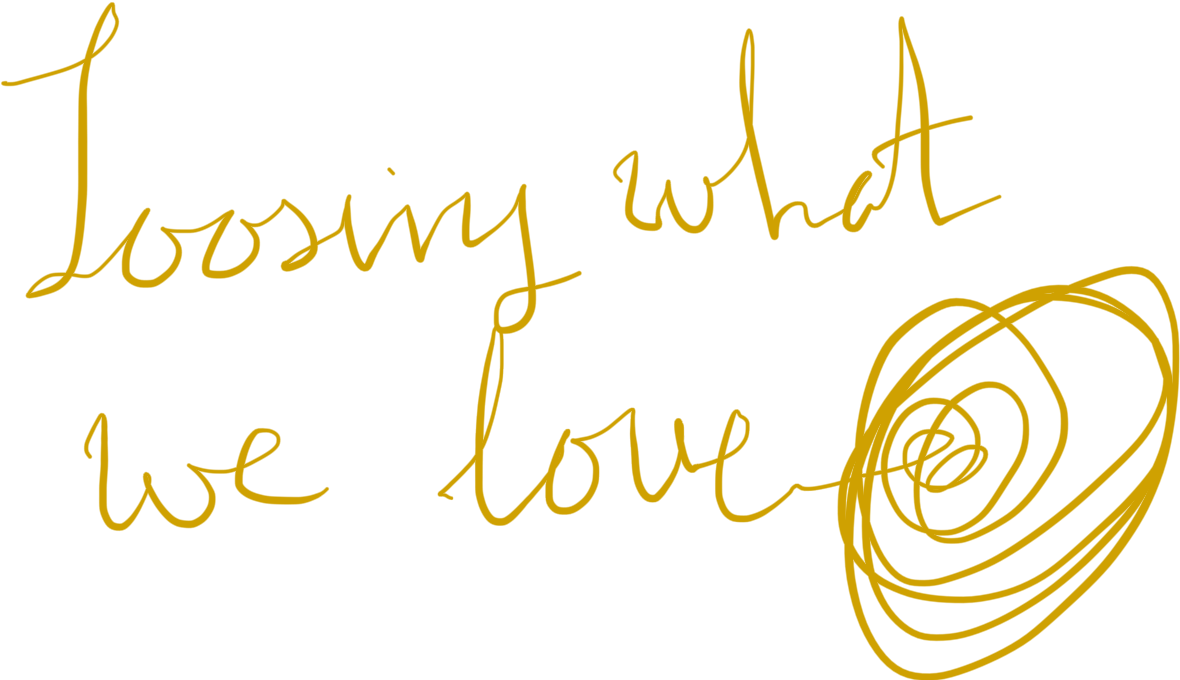 Loosing what
we love